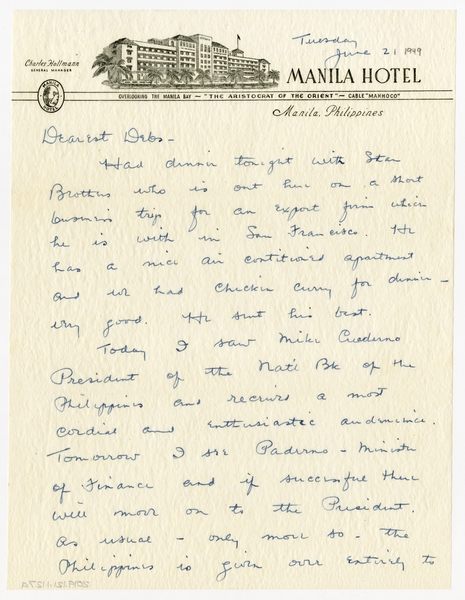 Tuesday
June 21 1949
Charles Hollmann
GENERAL MANAGER
MANILA HOTEL
MANILA HOTEL
OVERLOOKING THE MANILA BAY — "THE ARISTOCRAT OF THE ORIENT" — CABLE "MANHOCO"
Manila, Philippines
Dearest Debs -
Had dinner tonight with Stan
Brothers who is out here on a short
business trip for an export firm which
he is with in San Francisco. He
has a nice air contitioned apartment
and we had chicken curry for dinner -
very good. He sent his best.
Today I saw Mike Cuaderno
President of the Nat'l Bk of the
Philippines and received a most
cordial and enthusiastic audience.
Tomorrow I see Paderno - Ministe
of Finance and if successful there
will move on to the President.
As usual - only more so - the
Philippines is given over entirely to